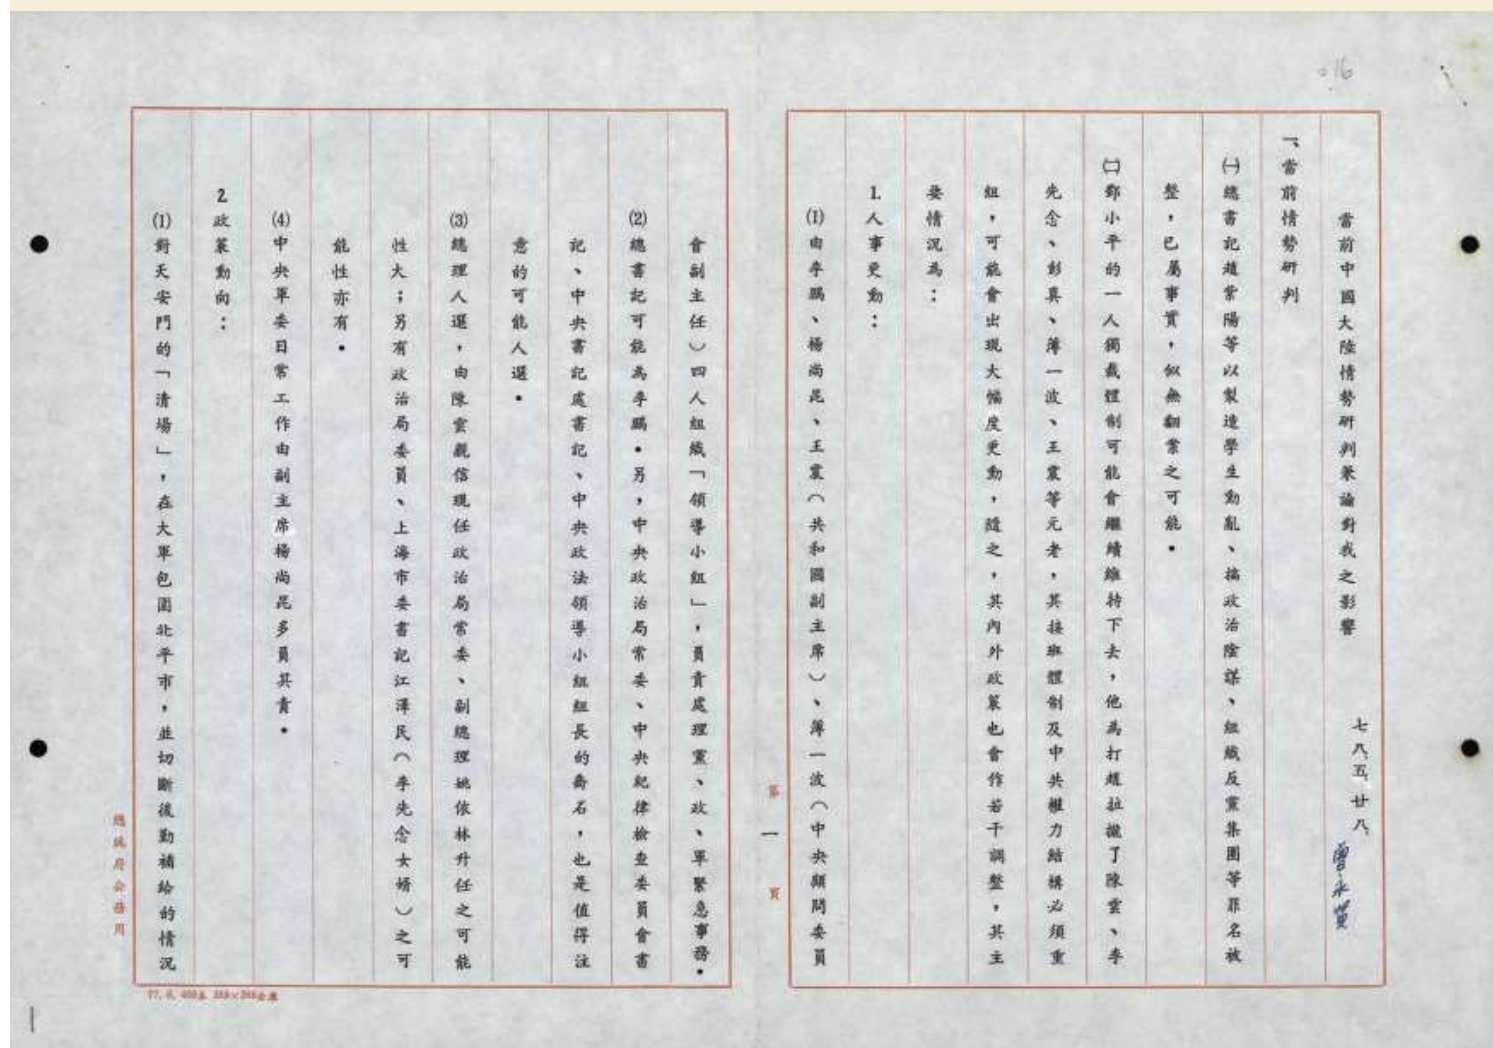 016
當前中國大陸情勢研判兼論對我之影響
七八、五、廿八、
曾永賢
一、當前情勢研判
㈠總書記趙紫陽等以製造學生動亂、搞政治陰謀、組織反黨集團等罪名被
整，已屬事實，似無翻案之可能。
㈡鄧小平的一人獨裁體制可能會繼續維持下去，他為打趙拉攏了陳雲、李
先念、彭真、薄一波、王震等元老，其接班體制及中共權力結構必須重
組，可能會出現大幅度更動，隨之，其內外政策也會作若干調整，其主
要情況為：
1.人事更動：
(1)由李鵬、楊尚昆、王震（共和國副主席）、薄一波（中央顧問委員
第一頁
會副主任）四人組織「領導小組」，負責處理黨、政、軍緊急事務。
(2)總書記可能為李鵬。另，中央政治局常委、中央紀律檢查委員會書
記、中央書記處書記、中央政法領導小組組長的喬石，也是值得注
意的可能人選。
(3)總理人選，由陳雲親信現任政治局常委、副總理姚依林升任之可能
性大；另有政治局委員、上海市委書記江澤民（李先念女婿）之可
能性亦有。
(4)中央軍委日常工作由副主席楊尚昆多負其責。
2.政策動向：
(1)對天安門的「清場」，在大軍包圍北平市，並切斷後勤補給的情況
總統府公務用